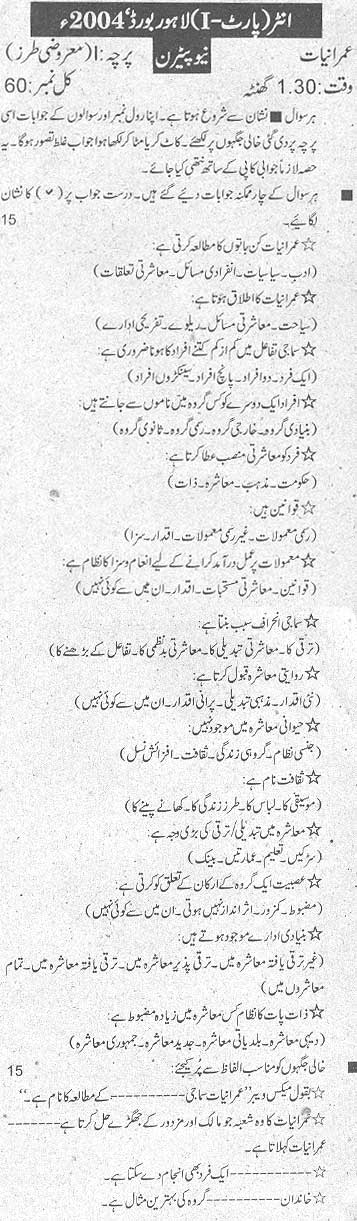 انٹر (پارٹ-I) لاہور بورڈ، 2004ء
عمرانیات نیو پیٹرن پرچہ: I (معروضی طرز)
وقت: 1.30 گھنٹہ کل نمبر: 60
■ ہر سوال ■ نشان سے شروع ہوتا ہے۔ اپنا رول نمبر اور سوالوں کے جوابات اسی
پرچہ پر دی گئی خالی جگہوں پر لکھئے۔ کاٹ کر یا مٹا کر لکھا ہوا جواب غلط تصور ہو گا۔ یہ
حصہ لازماً جوابی کاپی کے ساتھ نتھی کیا جائے۔
■ ہر سوال کے چار ممکنہ جوابات دیئے گئے ہیں۔ درست جواب پر (✓) کا نشان
لگائیے۔ 15
☆ عمرانیات کن باتوں کا مطالعہ کرتی ہے:
(ادب۔ سیاسیات۔ انفرادی مسائل۔ معاشرتی تعلقات)
☆ عمرانیات کا اطلاق ہوتا ہے:
(سیاحت۔ معاشرتی مسائل۔ ریلوے۔ تفریحی ادارے)
☆ سماجی تفاعل میں کم از کم کتنے افراد کا ہونا ضروری ہے:
(ایک فرد۔ دو افراد۔ پانچ افراد۔ سینکڑوں افراد)
☆ افراد ایک دوسرے کو کس گروہ میں ناموں سے جانتے ہیں:
(بنیادی گروہ۔ خارجی گروہ۔ رسمی گروہ۔ ثانوی گروہ)
☆ فرد کو معاشرتی منصب عطا کرتا ہے:
(حکومت۔ مذہب۔ معاشرہ۔ ذات)
☆ قوانین ہیں:
(رسمی معمولات۔ غیر رسمی معمولات۔ اقدار۔ سزا)
☆ معمولات پر عمل درآمد کرانے کے لیے انعام و سزا کا نظام ہے:
(قوانین۔ معاشرتی مستحبات۔ اقدار۔ ان میں سے کوئی نہیں)
☆ سماجی انحراف سبب بنتا ہے:
(ترقی کا۔ معاشرتی تبدیلی کا۔ معاشرتی بدنظمی کا۔ تفاعل کے بڑھنے کا)
☆ روایتی معاشرہ قبول کرتا ہے:
(نئی اقدار۔ مذہبی تبدیلی۔ پرانی اقدار۔ ان میں سے کوئی نہیں)
☆ حیوانی معاشرہ میں موجود نہیں:
(جنسی نظام۔ گروہی زندگی۔ ثقافت۔ افزائش نسل)
☆ ثقافت نام ہے:
(موسیقی کا۔ لباس کا۔ طرز زندگی کا۔ کھانے پینے کا)
☆ معاشرہ میں تبدیلی/ترقی کی بڑی وجہ ہے:
(سڑکیں۔ تعلیم۔ عمارتیں۔ بینک)
☆ عصبیت ایک گروہ کے ارکان کے تعلق کو کرتی ہے:
(مضبوط۔ کمزور۔ اثر انداز نہیں ہوتی۔ ان میں سے کوئی نہیں)
☆ بنیادی ادارے موجود ہوتے ہیں:
(غیر ترقی یافتہ معاشرہ میں۔ ترقی پذیر معاشرہ میں۔ ترقی یافتہ معاشرہ میں۔ تمام
معاشروں میں)
☆ ذات پات کا نظام کس معاشرہ میں زیادہ مضبوط ہے:
(دیہی معاشرہ۔ بلدیاتی معاشرہ۔ جدید معاشرہ۔ جمہوری معاشرہ)
■ خالی جگہوں کو مناسب الفاظ سے پُر کیجئے: 15
☆ بقول میکس ویبر "عمرانیات سماجی ---------- کے مطالعہ کا نام ہے۔"
☆ عمرانیات کا وہ شعبہ جو مالک اور مزدور کے جھگڑے حل کرتا ہے ----------
عمرانیات کہلاتا ہے۔
☆ ---------- ایک فرد بھی انجام دے سکتا ہے۔
☆ خاندان ---------- گروہ کی بہترین مثال ہے۔